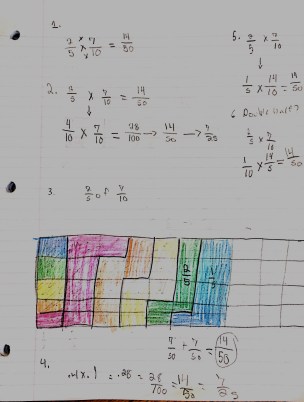 1.
2/5 × 7/10 = 14/50
2. 2/5 × 7/10 = 14/50
↓
4/10 × 7/10 = 28/100 → 14/50 → 7/25
3. 2/5 of 7/10
2/5 1/5
7/50 + 7/50 = 14/50
4.
.4 × .7 = .28 = 28/100 = 14/50 = 7/25
5. 2/5 × 7/10
↓
1/5 × 14/10 = 14/50
6 Double half?
2/5 × 7/10
1/10 × 14/5 = 14/50